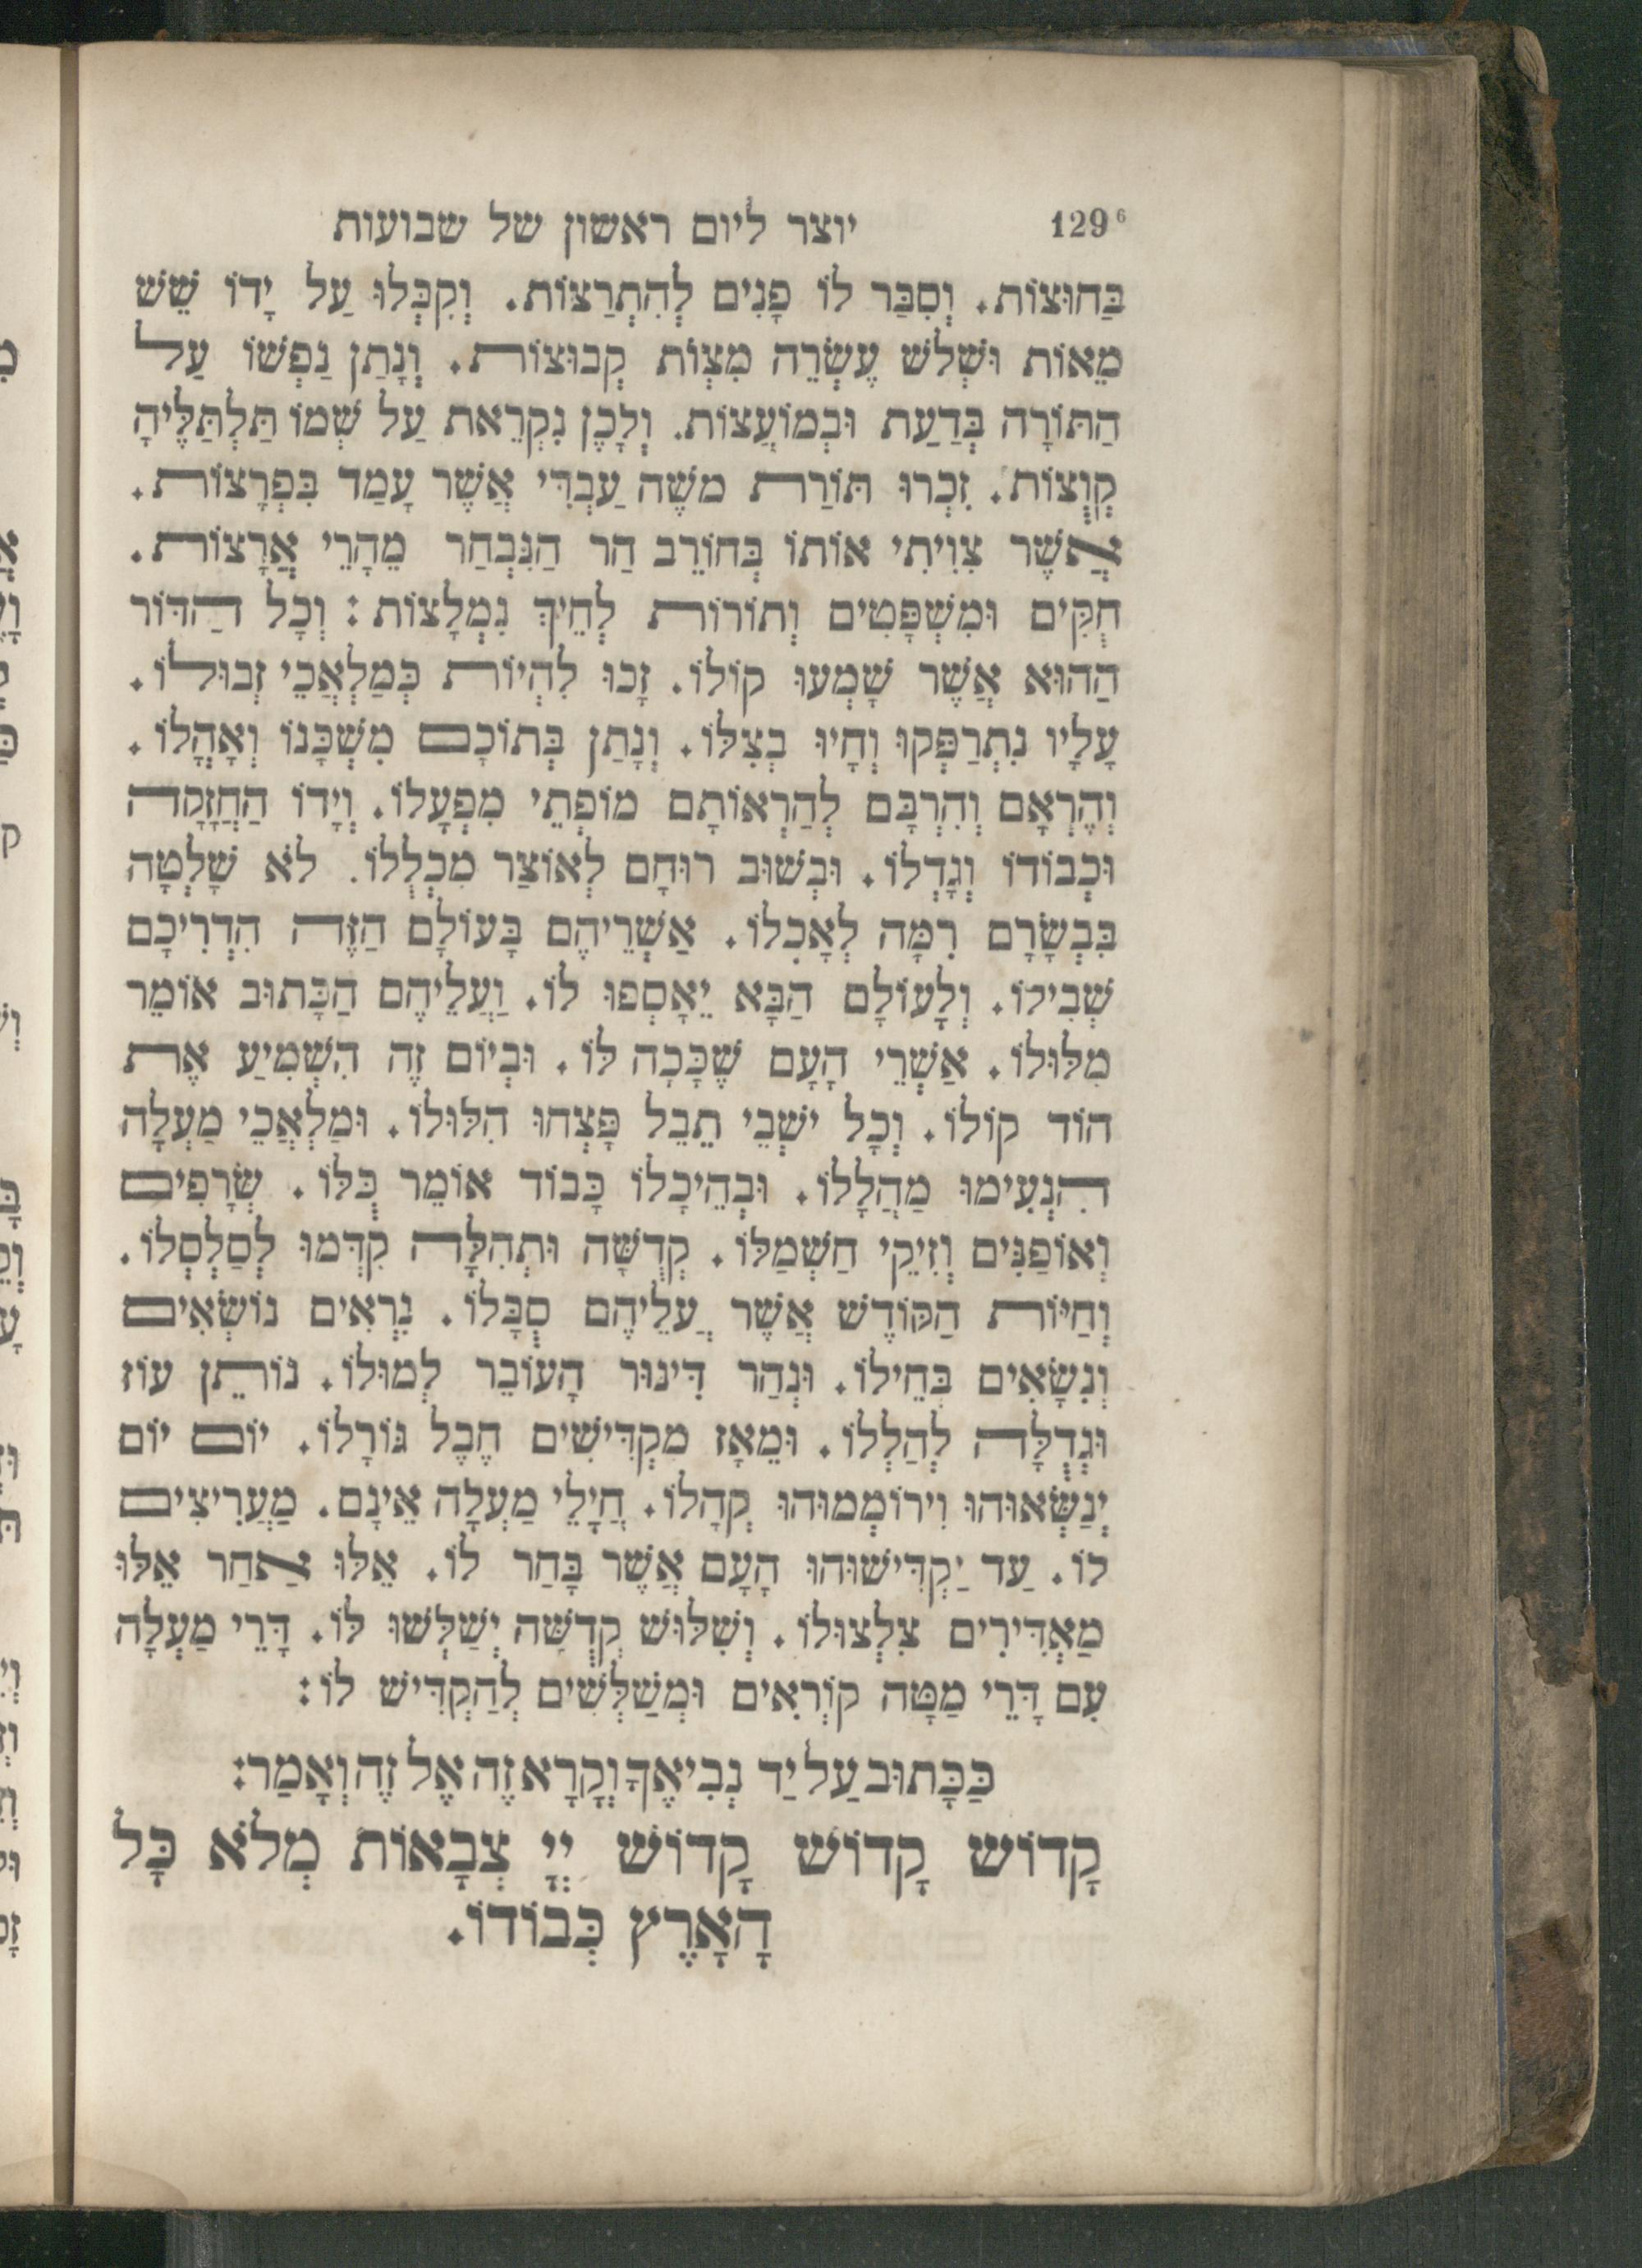 129⁶ יוצר ליום ראשון של שבועות
בַּחוּצוֹת. וְסִבַּר לוֹ פָנִים לְהִתְרַצּוֹת. וְקִבְּלוּ עַל יָדוֹ שֵׁשׁ
מֵאוֹת וּשְׁלשׁ עֶשְׂרֵה מִצְוֹת קְבוּצוֹת. וְנָתַן נַפְשׁוֹ עַל
הַתּוֹרָה בְּדַעַת וּבְמוֹעֲצוֹת. וְלָכֶן נִקְרֵאת עַל שְׁמוֹ תַּלְתַּלֶּיהָ
קְוֻצּוֹת. זִכְרוּ תּוֹרַת משֶׁה עַבְדִּי אֲשֶׁר עָמַד בִּפְרָצוֹת.
אֲשֶׁר צִוִּיתִי אוֹתוֹ בְּחוֹרֵב הַר הַנִּבְחַר מֵהָרֵי אֲרָצוֹת.
חֻקִּים וּמִשְׁפָּטִים וְתוֹרוֹת לְחֵיךְ נִמְלָצוֹת: וְכָל הַדּוֹר
הַהוּא אֲשֶׁר שָׁמְעוּ קוֹלוֹ. זָכוּ לִהְיוֹת כְּמַלְאֲכֵי זְבוּלוֹ.
עָלָיו נִתְרַפְּקוּ וְחָיוּ בְצִלּוֹ. וְנָתַן בְּתוֹכָם מִשְׁכָּנוֹ וְאָהֳלוֹ.
וְהֶרְאָם וְהִרְבָּם לְהַרְאוֹתָם מוֹפְתֵי מִפְעָלוֹ. וְיָדוֹ הַחֲזָקָה
וּכְבוֹדוֹ וְגָדְלוֹ. וּבְשׁוּב רוּחָם לְאוֹצַר מִכְלְלוֹ. לֹא שָׁלְטָה
בִּבְשָׂרָם רִמָּה לְאָכְלוֹ. אַשְׁרֵיהֶם בָּעוֹלָם הַזֶּה הִדְרִיכָם
שְׁבִילוֹ. וְלָעוֹלָם הַבָּא יֵאָסְפוּ לוֹ. וַעֲלֵיהֶם הַכָּתוּב אוֹמֵר
מִלּוּלוֹ. אַשְׁרֵי הָעָם שֶׁכָּכָה לּוֹ. וּבְיוֹם זֶה הִשְׁמִיעַ אֶת
הוֹד קוֹלוֹ. וְכָל ישְׁבֵי תֵבֵל פָּצְחוּ הִלּוּלוֹ. וּמַלְאֲכֵי מַעְלָה
הִנְעִימוּ מַהֲלָלוֹ. וּבְהֵיכָלוֹ כָּבוֹד אוֹמֵר כֻּלּוֹ. שְׂרָפִים
וְאוֹפַנִּים וְזִיקֵי חַשְׁמַלּוֹ. קְדֻשָּׁה וּתְהִלָּה קִדְּמוּ לְסַלְסְלוֹ.
וְחַיּוֹת הַקּוֹדֶשׁ אֲשֶׁר עֲלֵיהֶם סְבָּלוֹ. נִרְאִים נוֹשְׂאִים
וְנִשָּׂאִים בְּחֵילוֹ. וּנְהַר דִּינוּר הָעוֹבֵר לְמוּלוֹ. נוֹתֵן עוֹז
וּגְדֻלָּה לְהַלְלוֹ. וּמֵאָז מַקְדִּישִׁים חֶבֶל גּוֹרָלוֹ. יוֹם יוֹם
יְנַשְּׂאוּהוּ וִירוֹמְמוּהוּ קְהָלוֹ. חֲיָלֵי מַעְלָה אֵינָם. מַעֲרִיצִים
לוֹ. עַד יַקְדִּישׁוּהוּ הָעָם אֲשֶׁר בָּחַר לוֹ. אֵלּוּ אַחַר אֵלּוּ
מַאְדִּירִים צִלְצוּלוֹ. וְשִׁלּוּשׁ קְדֻשָּׁה יְשַׁלְּשׁוּ לּוֹ. דָּרֵי מַעְלָה
עִם דָּרֵי מַטָּה קוֹרְאִים וּמְשַׁלְּשִׁים לְהַקְדִּישׁ לוֹ:
כַּכָּתוּב עַל יַד נְבִיאֶךָ וְקָרָא זֶה אֶל זֶה וְאָמַר:
קָדוֹשׁ קָדוֹשׁ קָדוֹשׁ יְיָ צְבָאוֹת מְלֹא כָּל
הָאָרֶץ כְּבוֹדוֹ.